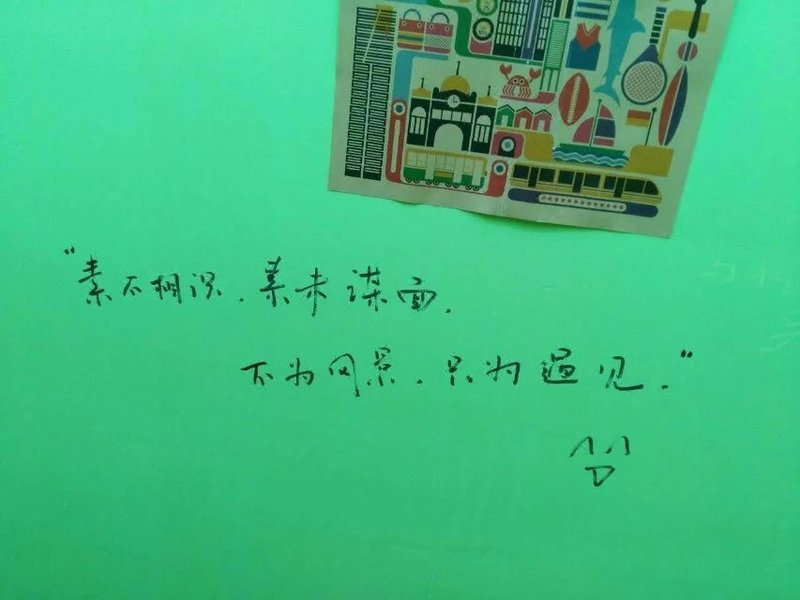 "素不相识,素未谋面.
不为风景,只为遇见."